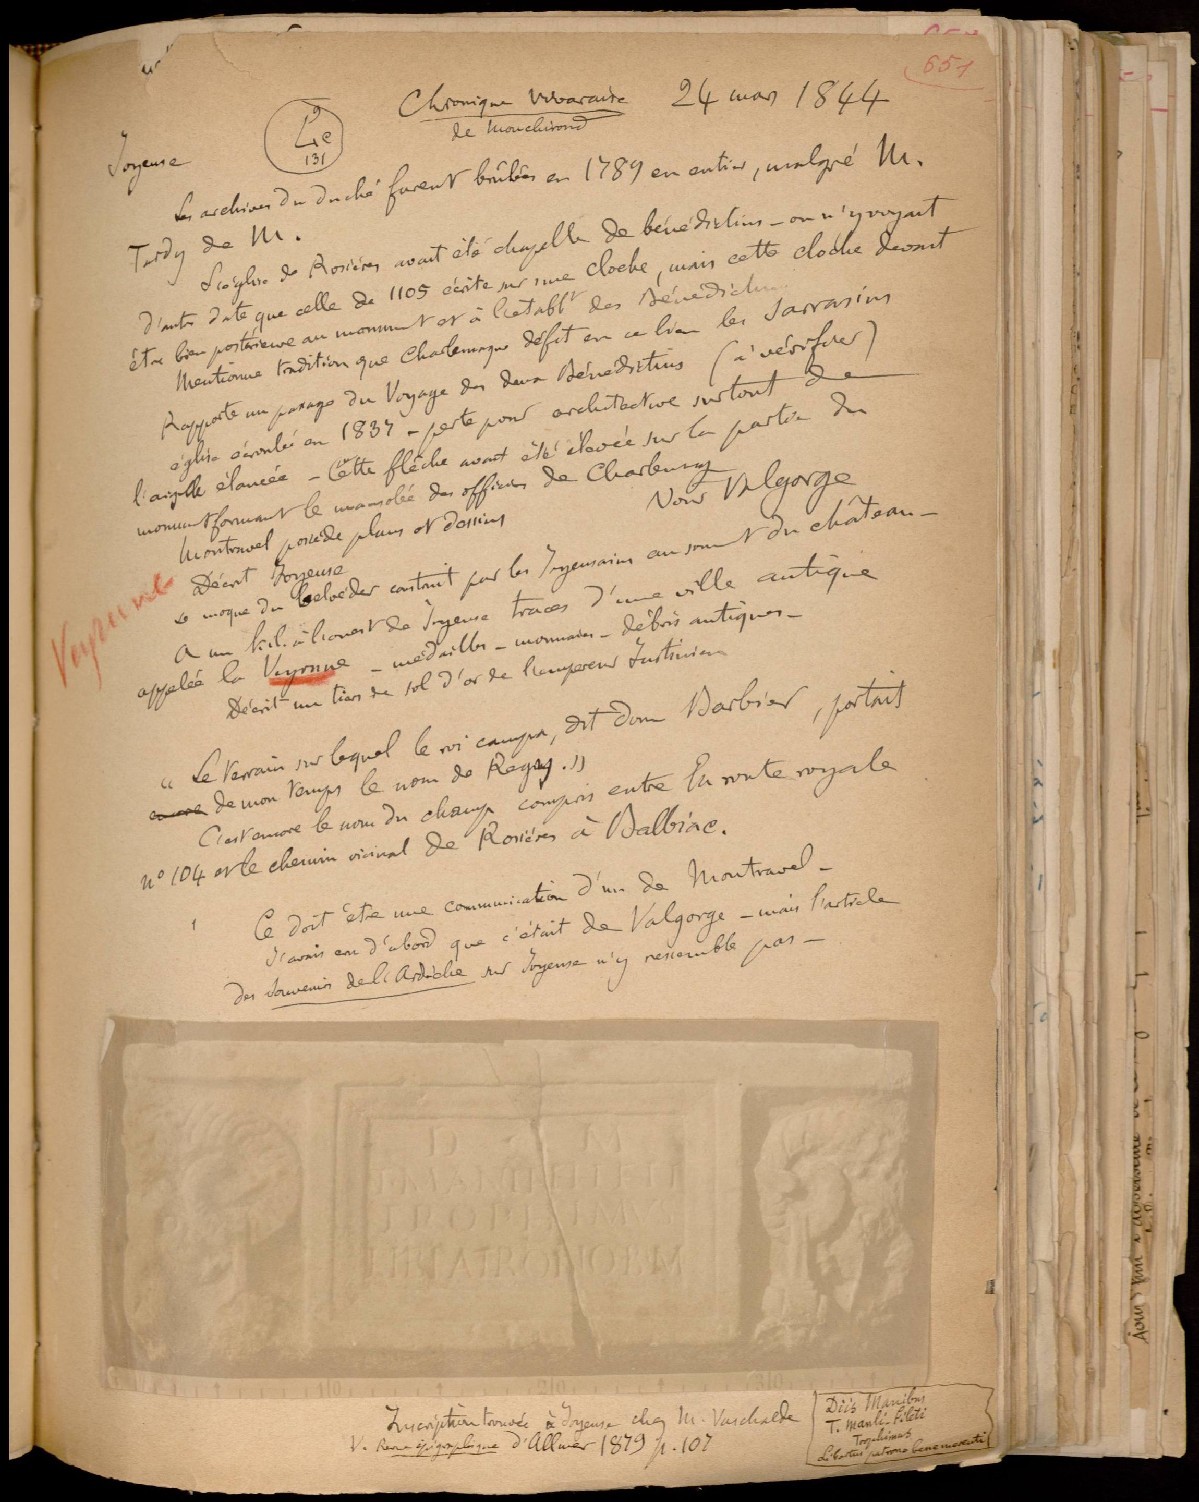 651
Chronique Vivaraise 24 mars 1844
de Monchirond
L 9 e
131
Joyeuse
Les archives du duché furent brûlées en 1789 en entier, malgré M.
Tardy de M.
L'église de Rosières avait été chapelle de bénédictins - on n'y voyait
d'autre date que celle de 1105 écrite sur une cloche, mais cette cloche devait
être bien postérieure au monument et à l'établt des Bénédictins
Mentionne tradition que Charlemagne défit en ce lieu les Sarrasins
Rapporte un passage du Voyage des deux Bénédictins (à vérifier)
église écroulée en 1837 - perte pour architecture surtout de
l'aiguille élancée - Cette flèche avait été élevée sur la partie du
monument formant le mausolée des officiers de Charlemag
Montravel possède plans et dessins
Voir Valgorge
Décrit Joyeuse
se moque du belvéder construit par les Joyeusains au sommet du château -
Veyrune
A un kil. à l'ouest de Joyeuse traces d'une ville antique
appelée la Veyrune - médailles - monnaies - débris antiques -
Décrit un tiers de sol d'or de l'empereur Justinien
"Le terrain sur lequel le roi campa, dit dom Barbier, portait
encore de mon temps le nom de Regay."
C'est encore le nom du champ compris entre la route royale
n° 104 et le chemin vicinal de Rosières à Balbiac.
Ce doit être une communication d'un de Montravel -
J'avais cru d'abord que c'était de Valgorge - mais l'article
des Souvenirs de l'Ardèche sur Joyeuse n'y ressemble pas -
Inscription trouvée à Joyeuse chez M. Vaschalde
V. Revue épigraphique d'Allmer 1879 p. 107
Diis Manibus
T. Manli Fileti
Trophimus
Libertus patrono bene merenti